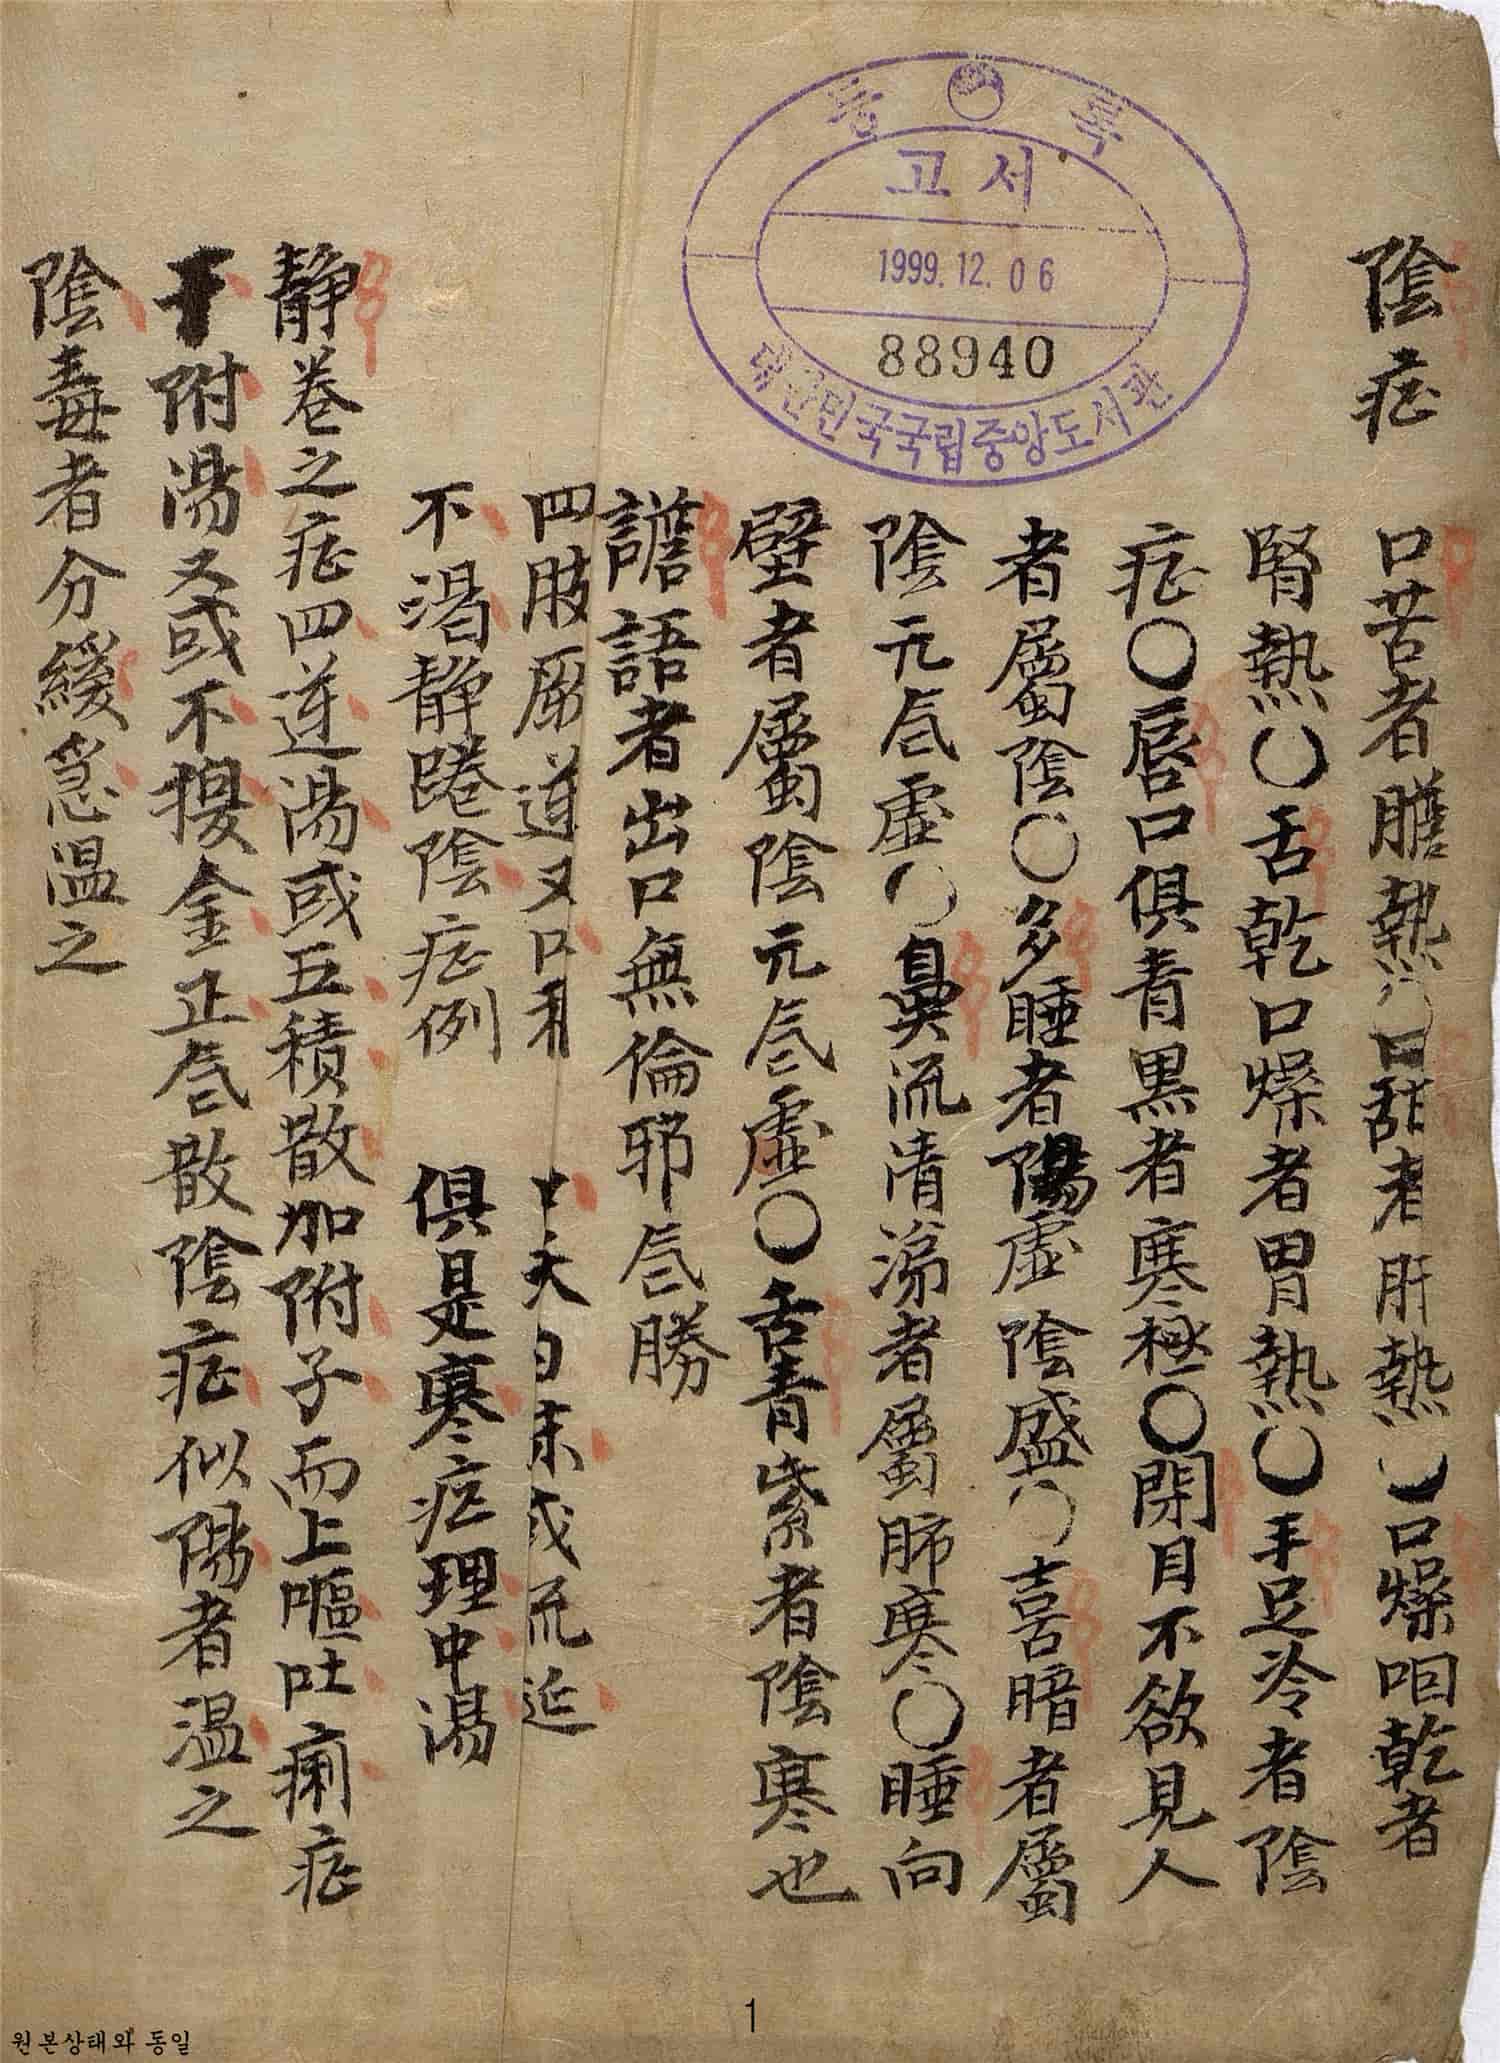 陰症
口苦者膽熱〇口甜者肝熱〇口燥咽乾者
腎熱〇舌乾口燥者胃熱〇手足冷者陰
症〇唇口俱青黑者寒極〇閉目不欲見人
者屬陰〇多睡者陽虛陰盛〇喜暗者屬
陰元气虛〇鼻流清涕者屬肺寒〇睡向
壁者屬陰元气虛〇舌青紫者陰寒也
譫語者出口無倫邪气勝
四肢厥逆又口和
不渴静踡陰症例 俱是寒症理中湯
静卷之症四逆湯或五積散加附子而上嘔吐痢症
干附湯又或不換金正气散陰症似陽者温之
陰毒者分緩急温之
등록
고서
1999. 12. 06
88940
대한민국국립중앙도서관
1
원본상태와 동일